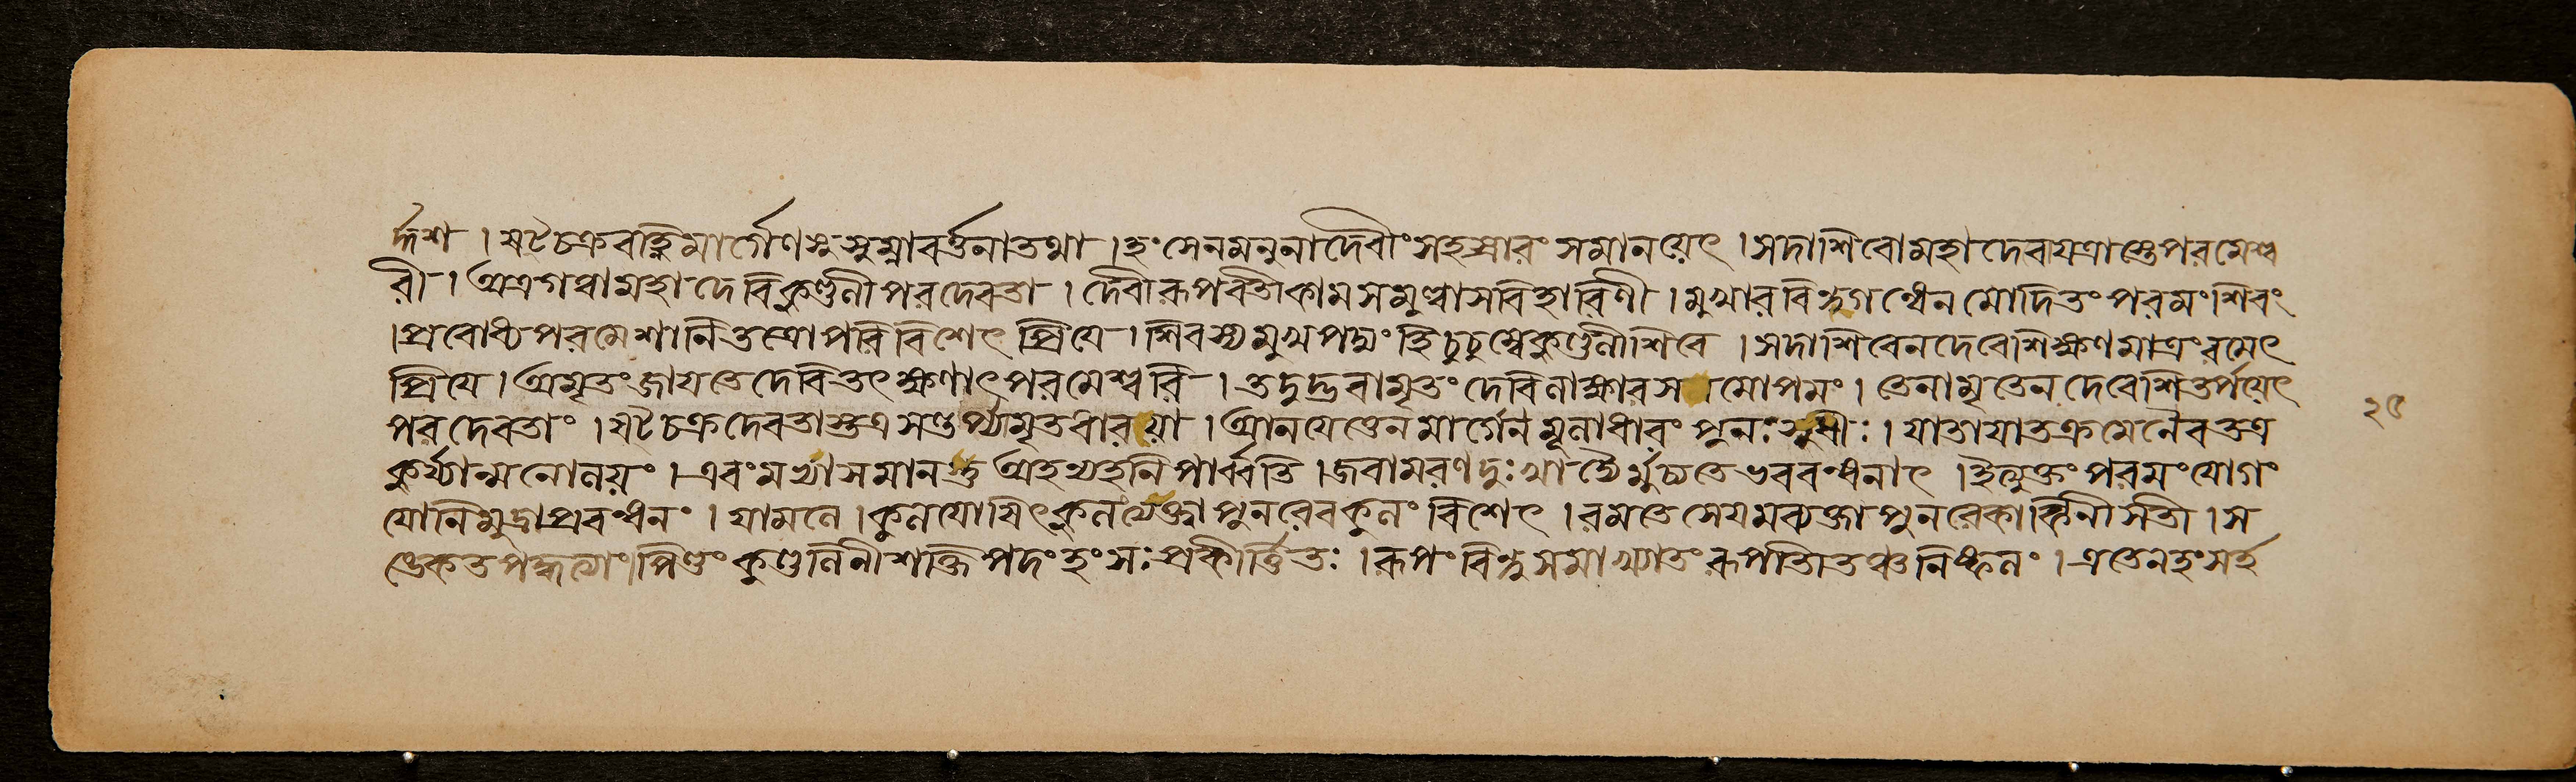 র্দশ । ষটচক্রবহ্নিমার্গেণসুসুম্নাবর্ত্তনাতথা । হংসেনমনুনাদেবীংসহস্রারং সমানয়েৎ । সদাশিবোমহাদেবাযত্রাস্তেপরমেশ্ব
রী । অত্রগত্বামহাদেবিকুণ্ডলীপরদেবতা । দেবীরূপবতীকামসমুল্লাসবিহারিণী । মুখারবিন্দগন্ধেনমোদিতং পরমংশিবং
। প্রবোধ্যপরমেশানিতত্রোপরিবিশেৎ প্রিযে । শিবস্যমুখপদ্মংহিচুচুম্বেকুণ্ডলীশিবে । সদাশিবেনদেবেশিক্ষণমাত্রংরমেৎ
প্রিযে । অমৃতংজাযতেদেবিতৎক্ষণাৎপরমেশ্বরি । তদুদ্ভবামৃতংদেবিলাক্ষারস মোপমং । তেনামৃতেনদেবেশিতর্পয়েৎ
পরদেবতাং । ষটচক্রদেবতাস্তত্রসন্তর্প্যামৃতধারয়া । আনযেত্তেনমার্গেনমূলাধারং পুনঃসুধীঃ । যাতাযাতক্রমেনৈবতত্র ২৫
কুর্য্যান্মনোলয়ং । এবংমভ্যাসমানস্তু অহন্যহনিপার্ব্বতি । জরামরণদুঃখাদ্যৈর্মুচ্যতেভববন্ধনাৎ । ইত্যুক্তংপরমংযোগং
যোনিমুদ্রাপ্রবন্ধনং । যামলে । কুলযোষিৎকুলংত্যক্ত্বাপুনরেবকুলং বিশেৎ । রমতেসেযমব্যক্তাপুনরেকাকিনীসতী । স
ঙ্কেতপদ্ধত্যাং । পিণ্ডংকুণ্ডলিনীশক্তিপদংহংসঃপ্রকীর্ত্তিতঃ । রূপংবিন্দুসমাখ্যাতংরূপাতীতঞ্চনিষ্কলং । এতেনহংসর্হ